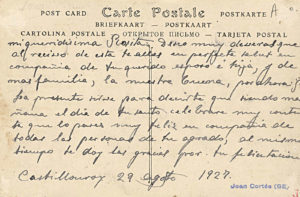 POST CARD Carte Postale POSTKARTE A
BRIEFKAART — POSTKAART
CARTOLINA POSTALE ОТКРЫТОЕ ПИСЬМО TARJETA POSTAL
mi queridisima Rosita, Deseo muy deveras que
al recivo de esta te alles en perfecta salud en
compañia de tu querido esposo é hija, y de
mas familia, la nuestra buena, por ahora
La presente sirve para decirte que siendo ma
ñana el dia de tu santo celebrare muy contenta
te que lo pases muy feliz en compañia de
todas las personas de tu agrado, al mismo
tiempo te doy las gracias por tu felicitacion
Castilloroy 29 agosto 1927.
Joan Cortés (SE)